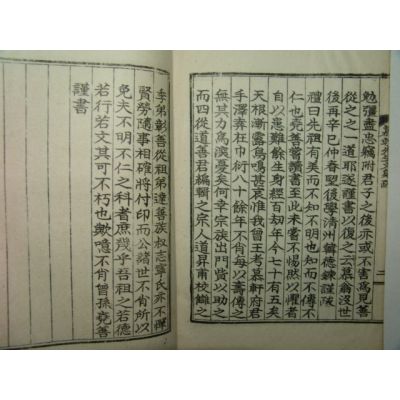 勉彊盡忠竊附君子之後亦或不害爲見善
從之之一道耶遂謹書以復之云慕翁沒世
後再辛巳仲春望後學淸州韓德鍊謹跋
禮曰先祖有美而不知不明也知而不傳不
仁也堯善嘗讀書至此未嘗不惕然以懼者
自以應難餘生身經百劫年今七十有五矣
天根漸露烏鳴甚哀惟我曾王考慕軒府君
手澤弆在巾衍八十餘年不肖每以壽傳之
無其力爲深憂矣何幸宗族出門皆以助之
而四從道善君編輯之宗人道昇甫校讎之
二
季弟彰善從祖弟達善族叔志寧氏亦不憚
賢勞隨事相確將付印而公諸世不肖所以
免夫不明不仁之科者庶幾乎吾祖之若德
若行若文其可不朽也歟噫不肖曾孫堯善
謹書